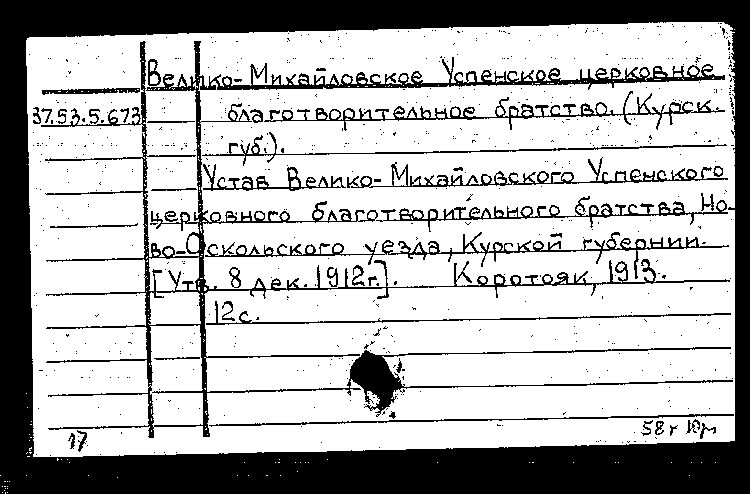 Велико-Михайловское Успенское церковное
37.53.5.673 благотворительное братство. (Курск.
губ.).
Устав Велико-Михайловского Успенского
церковного благотворительного братства, Но-
во-Оскольского уезда, Курской губернии.
[Утв. 8 дек. 1912г.]. Коротояк, 1913.
12с.
17 58г